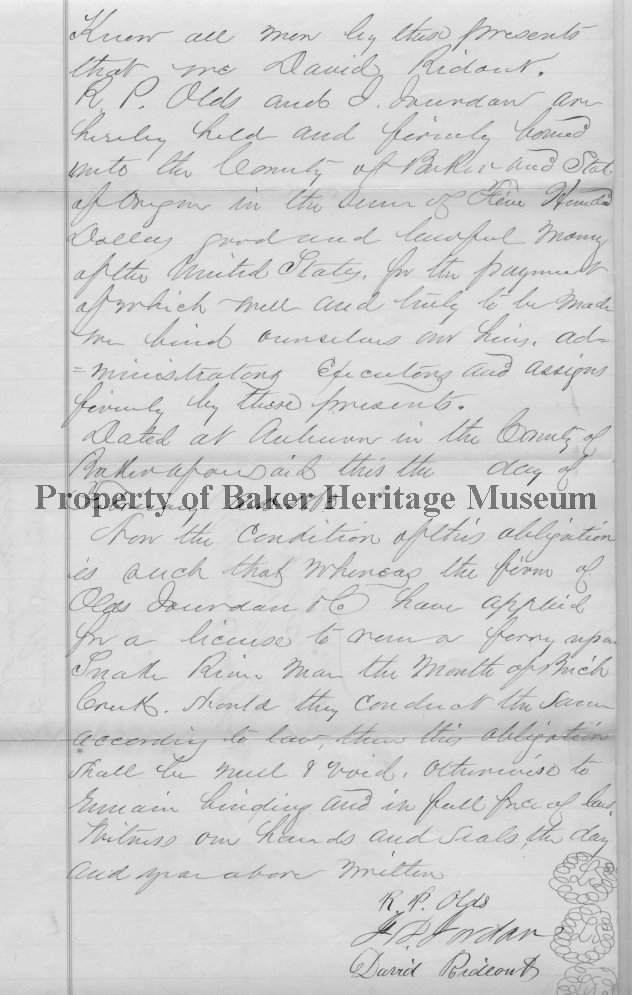 Know all men by these presents
that we David Ridout.
R. P. Olds and J. Jourdan are
hereby held and firmly bound
unto the County of Baker and State
of Oregon in the sum of Five Hundd
Dollars good and lawful money
of the United States, for the payment
of which well and truly to be made
we bind ourselves our heirs, ad=
=ministrators Executors and assigns
firmly by these presents.
Dated at Auburn in the County of
Baker aforesaid this the day of
Property of Baker Heritage Museum
Now the Condition of this obligation
is such that whereas the firm of
Olds Jourdan & C have applied
for a license to run a ferry upon
Snake River near the Mouth of Birch
Creek. Should they conduct the same
according to law, then this obligation
shall be null & void, otherwise to
remain binding and in full force of law.
Witness our hands and seals the day
and year above written
R. P. Olds
Jordan
David Rideout